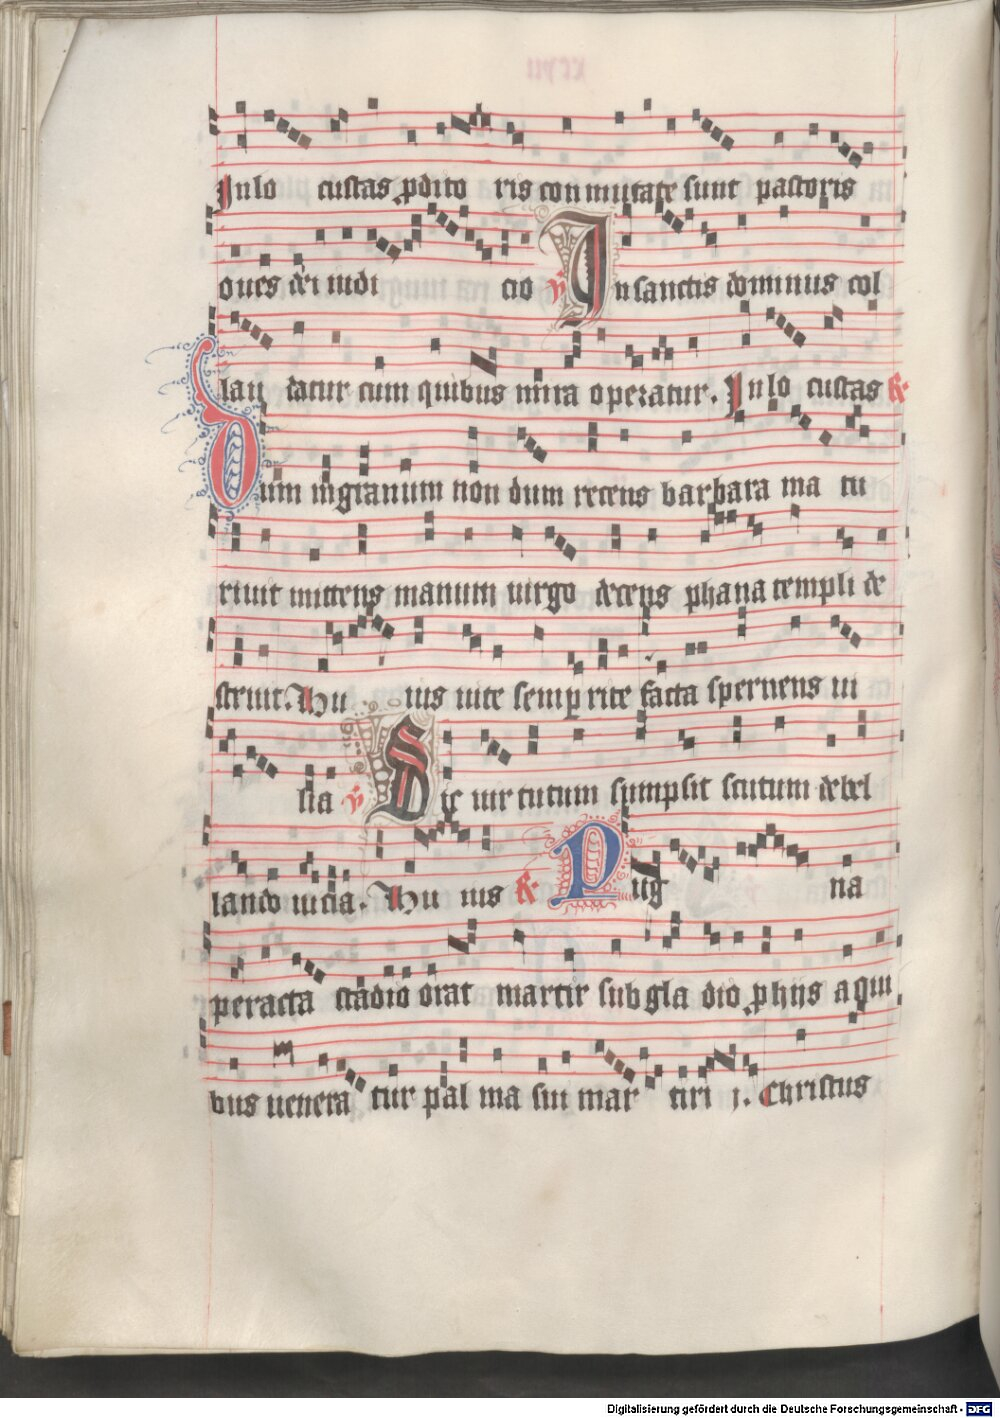 Inlo custas pdito ris conmutate sunt pastoris
oues dei iudi cio V In sanctis dominus col
lau datur cum quibus mira operatur. Inlo custas R
Dum ingranum non dum recens barbara ma tu
riuit mittens manum uirgo decens phana templi de
struit. Hu ius uite semp rite facta spernens ui
sia V Sic uir tutum sumpsit scutum debel
lando uicia. Hu ius R Pug na
peracta stadio orat martir sub gla dio phijs a qui
bus uenera tur pal ma sui mar tiri j. Christus
Digitalisierung gefördert durch die Deutsche Forschungsgemeinschaft - DFG